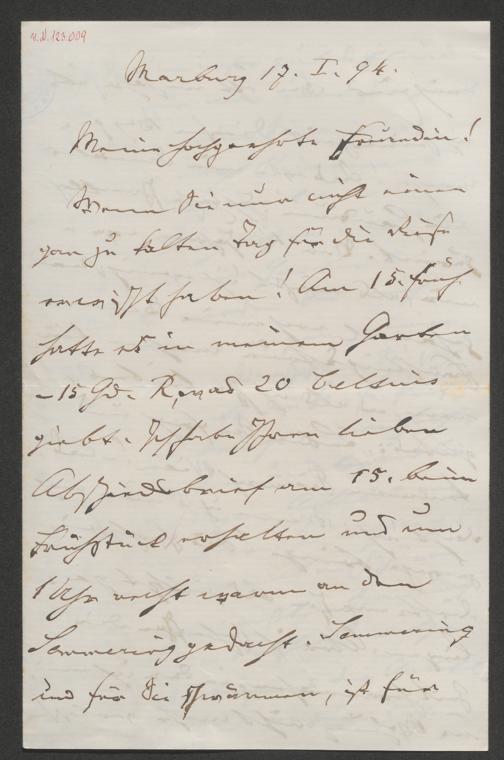 H.N. 123.009
Marburg 17. I. 94.
Meine hochgeehrte Freundin!
Wenn Sie nur nicht einen
gar zu kalten Tag für die Reise
erwischt haben! Am 15. früh
hatte es in meinem Garten
– 15 Gd. R, was 20 Celsius
giebt. Ich habe Ihren lieben
Abschiedsbrief am 15. beim
Frühstück erhalten und um
1 Uhr recht warm an den
Semmering gedacht. Semmering
und für Sie schwärmen, ist für